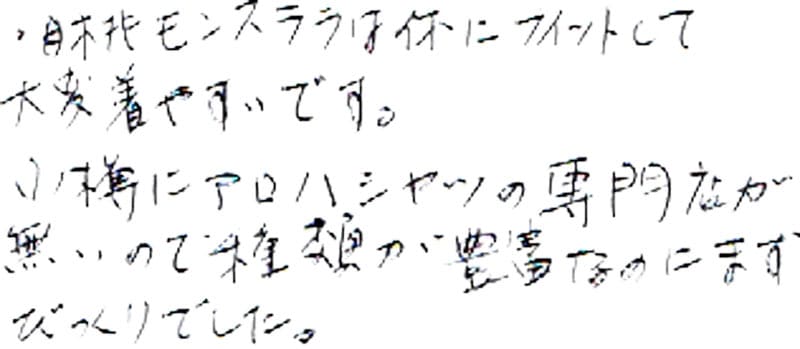 ・日本北モンスララは体にフィットして
大変着やすいです。
小樽にアロハシャツの専門店が
無いので種類が豊富なのにまず
びっくりでした。